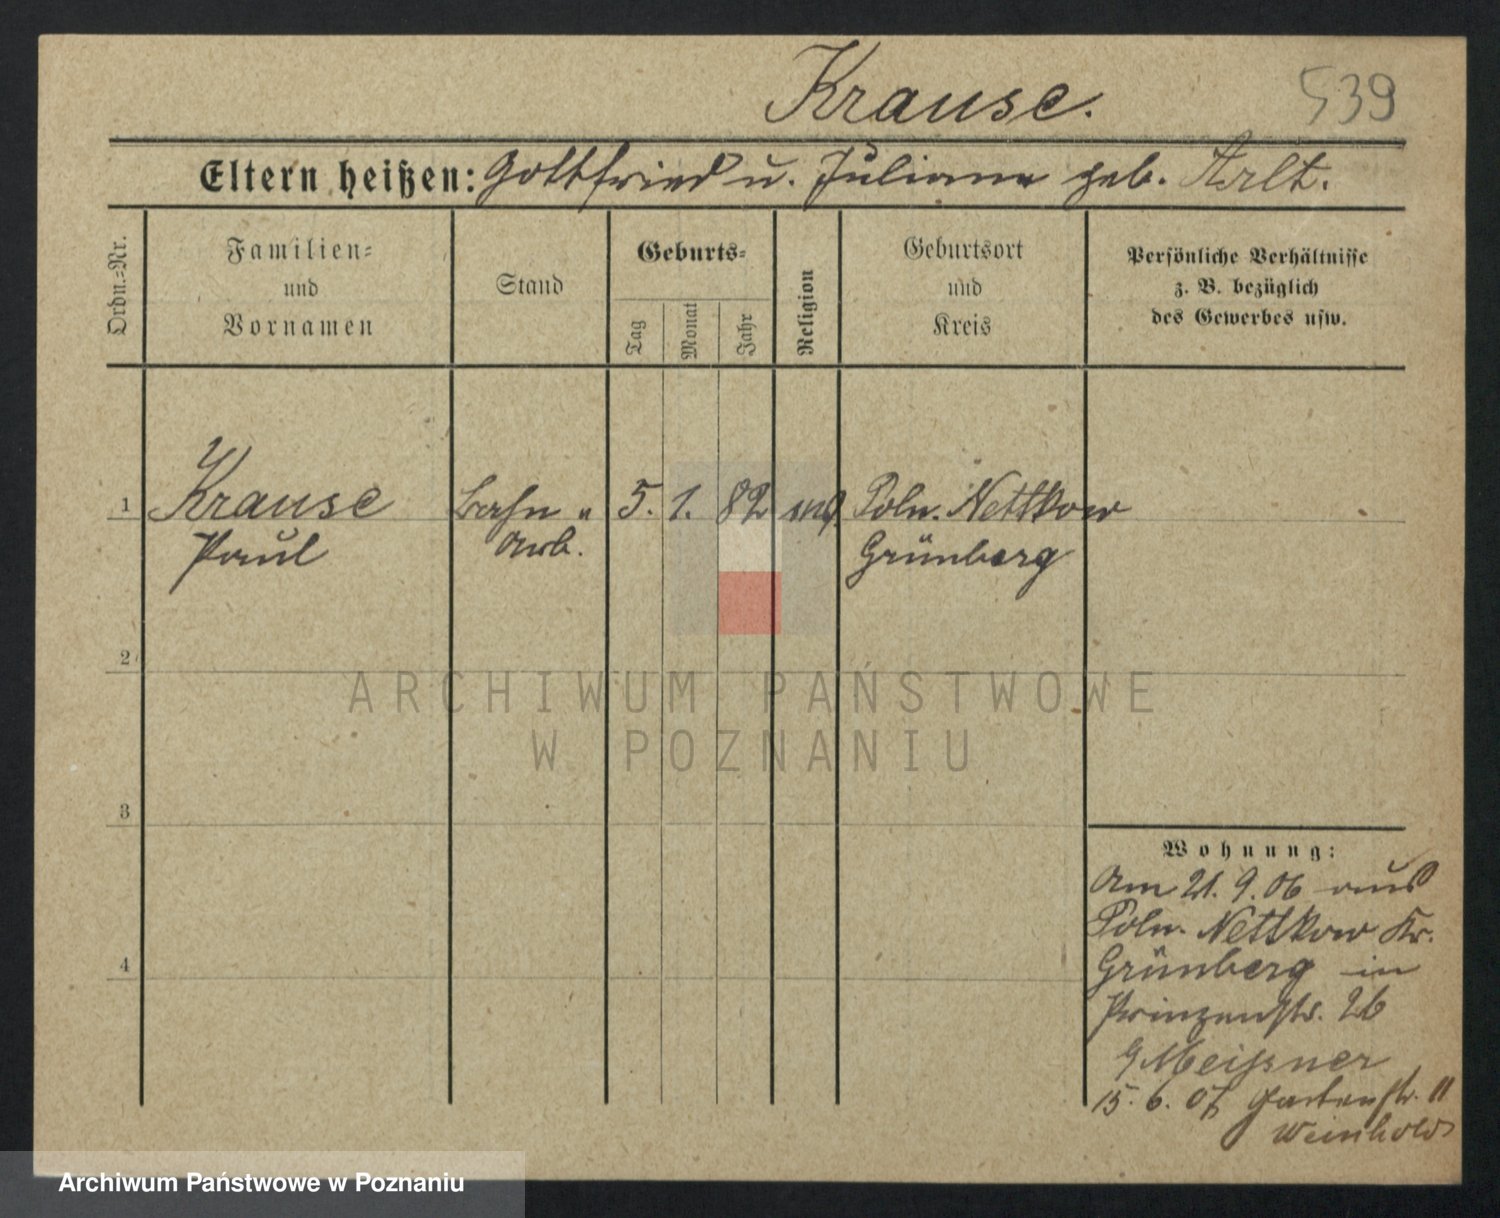 Krause.
539
Eltern heißen: Gottfried u. Juliane geb. Arlt.
Ordn.=Nr.
Familien=
und
Vornamen
Stand
Geburts=
Tag
Monat
Jahr
Religion
Geburtsort
und
Kreis
Persönliche Verhältnisse
z. B. bezüglich
des Gewerbes usw.
1 Krause Bahn 5. 1. 82 Poln. Nettkow
Paul Arb. Grünberg
2
3
4
ARCHIWUM PAŃSTWOWE
W POZNANIU
Wohnung:
Am 21. 9. 06 aus
Poln. Nettkow Kr.
Grünberg in
Prinzenstr. 26
Meißner
15. 6. 07 Gartenstr. 11
Weinhold
Archiwum Państwowe w Poznaniu